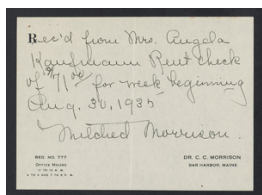 Rec'd from Mrs. Angela
Kaufmann Rent check
of $71.00 for week beginning
Aug. 30, 1935
Mildred Morrison.
REG. NO. 777
OFFICE HOURS
DR. C. C. MORRISON
BAR HARBOR, MAINE